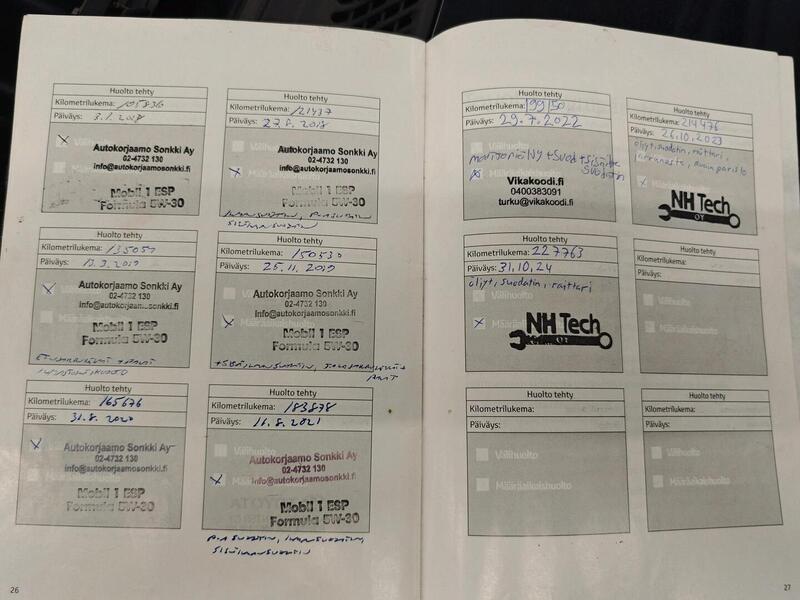 Huolto tehty
Kilometrilukema: 105836
Päiväys: 3.1.2018
Autokorjaamo Sonkki Ay
02-4732 130
info@autokorjaamosonkki.fi
Mobil 1 ESP
Formula 5W-30
Huolto tehty
Kilometrilukema: 121437
Päiväys: 27.8.2018
Autokorjaamo Sonkki Ay
02-4732 130
info@autokorjaamosonkki.fi
Mobil 1 ESP
Formula 5W-30
Huolto tehty
Kilometrilukema: 135050
Päiväys: 13.3.2019
Autokorjaamo Sonkki Ay
02-4732 130
info@autokorjaamosonkki.fi
Mobil 1 ESP
Formula 5W-30
Huolto tehty
Kilometrilukema: 150530
Päiväys: 25.11.2019
Autokorjaamo Sonkki Ay
02-4732 130
info@autokorjaamosonkki.fi
Määräaikaishuolto
Mobil 1 ESP
Formula 5W-30
Huolto tehty
Kilometrilukema: 165676
Päiväys: 31.8.2020
Autokorjaamo Sonkki Ay
02-4732 130
info@autokorjaamosonkki.fi
Mobil 1 ESP
Formula 5W-30
Huolto tehty
Kilometrilukema: 183878
Päiväys: 16.8.2021
Autokorjaamo Sonkki Ay
02-4732 130
info@autokorjaamosonkki.fi
Mobil 1 ESP
Formula 5W-30
26
Huolto tehty
Kilometrilukema: 199150
Päiväys: 29.7.2022
Vikakoodi.fi
0400383091
turku@vikakoodi.fi
Huolto tehty
Kilometrilukema: 214476
Päiväys: 26.10.2023
öljyt, suodatin, raittari,
jarruneste, avain paristo
NH Tech
OY
Huolto tehty
Kilometrilukema: 227763
Päiväys: 31.10.24
öljyt, suodatin, raittari
NH Tech
OY
Huolto tehty
Kilometrilukema:
Päiväys:
Välihuolto
Määräaikaishuolto
Huolto tehty
Kilometrilukema:
Päiväys:
Välihuolto
Määräaikaishuolto
Huolto tehty
Kilometrilukema:
Päiväys:
Välihuolto
Määräaikaishuolto
27